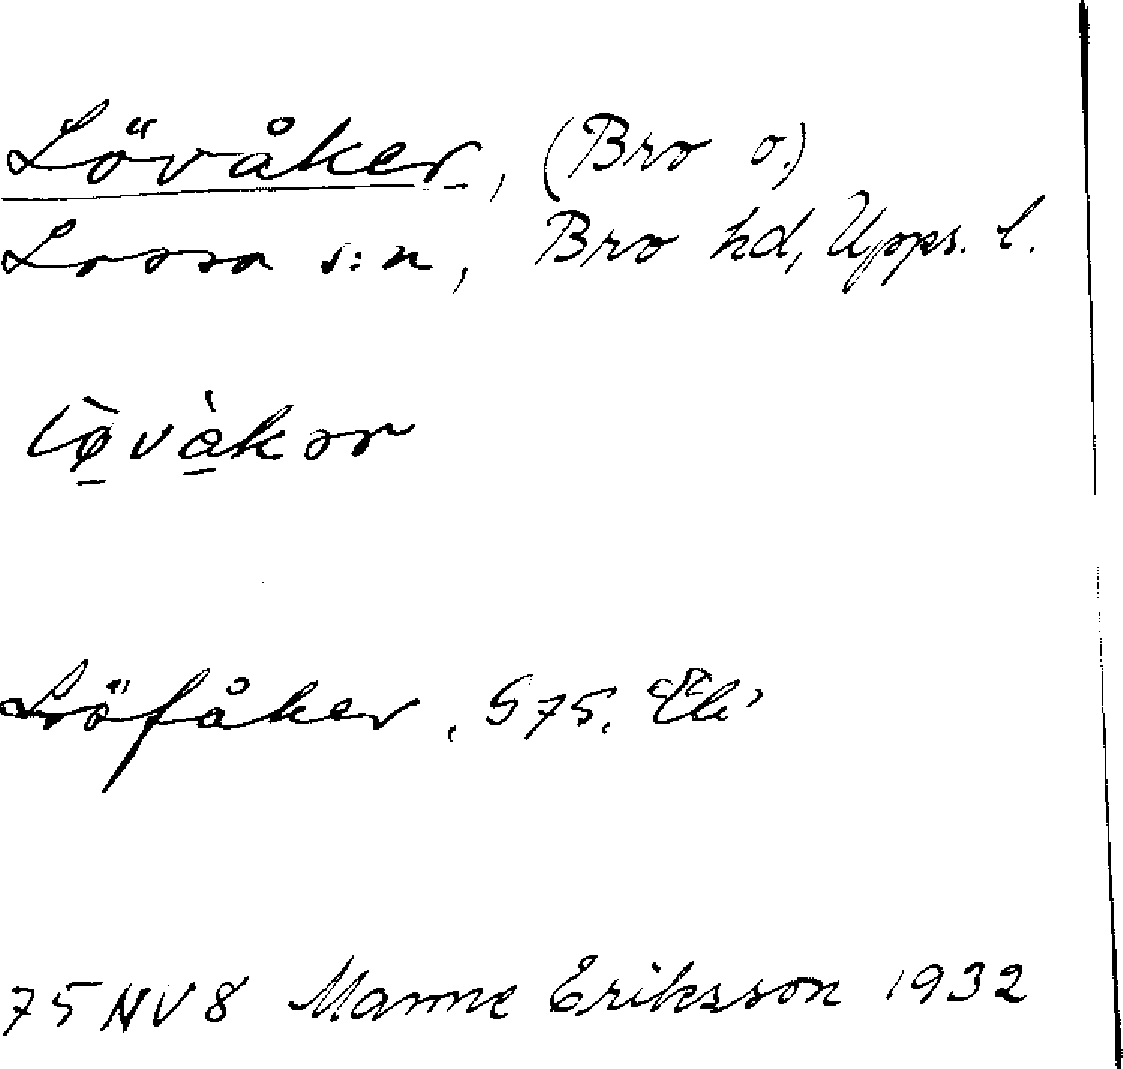 Lövåker, (Bro o.)
Lossa s:n, Bro hd, Upps. l.
lø̱̀và̱kər
Löfåker. S75. Ek.
75 NV 8 Manne Eriksson 1932